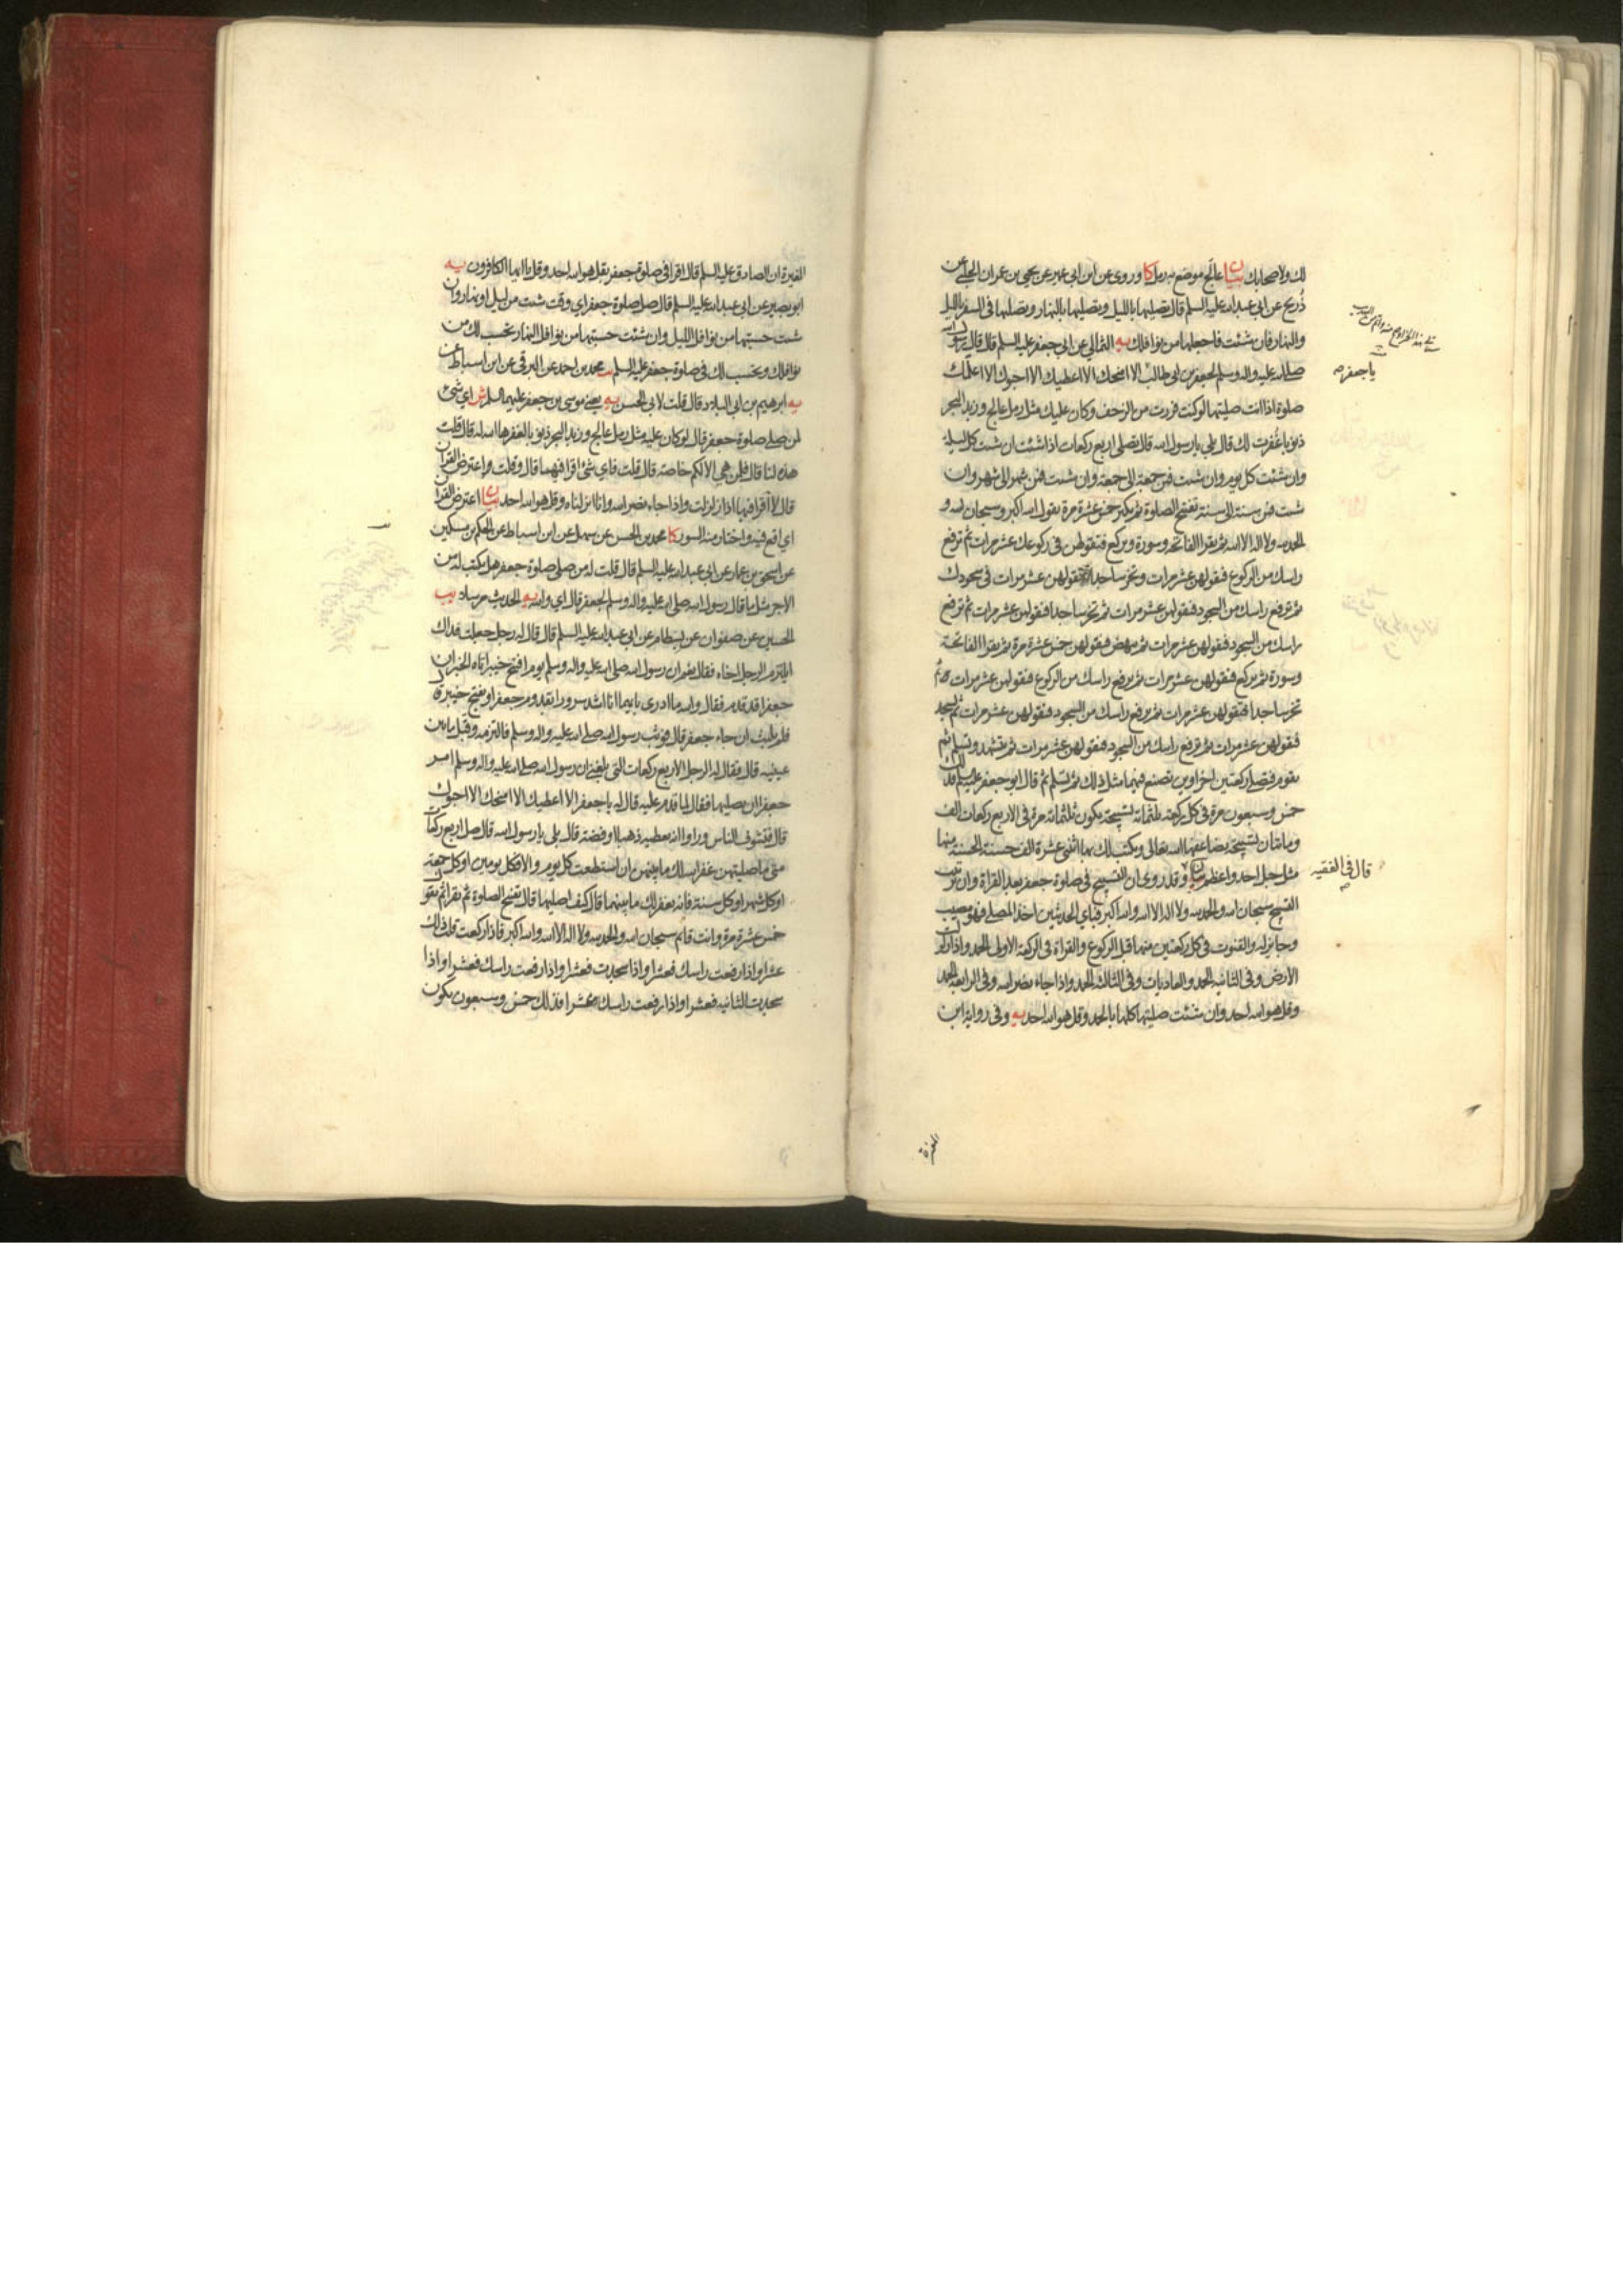 لك ولاصحابك بيان عالج موضع به رمل كا وروى عن ابن ابي عمير عن يحيى بن عمران الحلبي عن
ذريح عن ابي عبدالله عليه السلم قال تصليها بالليل وتصليها بالنهار وتصليها في السفر بالليل
والنهار فان شئت فاجعلها من نوافلك يه الثمالي عن ابي جعفر عليه السلم قال قال رسول الله
صلى الله عليه واله وسلم لجعفر بن ابي طالب الا امنحك الا اعطيك الا احبوك الا اعلمك
يا جعفر
صلوة اذا انت صليتها لو كنت فررت من الزحف وكان عليك مثل رمل عالج وزبد البحر
ذنوبا غفرت لك قال بلى يا رسول الله قال تصلي اربع ركعات اذا شئت ان شئت كل ليلة
وان شئت كل يوم وان شئت فمن جمعة الى جمعة وان شئت فمن شهر الى شهر وان
شئت فمن سنة الى سنة تفتتح الصلوة ثم تكبر خمس عشرة مرة تقول الله اكبر وسبحان الله و
الحمد لله ولا اله الا الله ثم تقرا الفاتحة وسورة وتركع فتقولهن في ركوعك عشر مرات ثم ترفع
راسك من الركوع فتقولهن عشر مرات وتخر ساجدا فتقولهن عشر مرات في سجودك
ثم ترفع راسك من السجود فتقولهن عشر مرات ثم تخر ساجدا فتقولهن عشر مرات ثم ترفع
راسك من السجود فتقولهن عشر مرات ثم تنهض فتقولهن خمس عشرة مرة ثم تقرا الفاتحة
وسورة ثم تركع فتقولهن عشر مرات ثم ترفع راسك من الركوع فتقولهن عشر مرات ثم
تخر ساجدا فتقولهن عشر مرات ثم ترفع راسك من السجود فتقولهن عشر مرات ثم تسجد
فتقولهن عشر مرات ثم ترفع راسك من السجود فتقولهن عشر مرات ثم تتشهد وتسلم ثم
تقوم فتصلي ركعتين اخراوين تصنع فيهما مثل ذلك ثم تسلم ثم قال ابو جعفر عليه السلم فذلك
خمس وسبعون مرة في كل ركعة ثلثمائة تسبيحة تكون ثلثمائة مرة في الاربع ركعات الف
ومائتان تسبيحة يضاعفها الله تعالى ويكتب لك بها اثنتي عشرة الف حسنة الحسنة منها
مثل جبل احد واعظم بيان وقد روى ان التسبيح في صلوة جعفر بعد القراة وان ترتيب
قال في الفقيه
التسبيح سبحان الله والحمد لله ولا اله الا الله والله اكبر فباي الحديثين اخذ المصلي فهو مصيب
وجايز له والقنوت في كل ركعتين منهما قبل الركوع والقراة في الركعة الاولى الحمد واذا زلزلت
الارض وفي الثانية الحمد والعاديات وفي الثالثة الحمد واذا جاء نصر الله وفي الرابعة الحمد
وقل هو الله احد وان شئت صليتها كلها بالحمد وقل هو الله احد يه وفي رواية ابن
المغيرة
المغيرة ان الصادق عليه السلم قال اقرا في صلوة جعفر بقل هو الله احد وقل يا ايها الكافرون يه
ابو بصير عن ابي عبدالله عليه السلم قال صل صلوة جعفر اي وقت شئت من ليل او نهار وان
شئت حسبتها من نوافل الليل وان شئت حسبتها من نوافل النهار تحسب لك من
نوافلك وتحسب لك في صلوة جعفر عليه السلم يب محمد بن احمد عن البرقي عن ابن اسباط عن
يه ابرهيم بن ابي البلاد قال قلت لابي الحسن يه يعني موسى بن جعفر عليهما السلم ش اي شئ
لمن صلى صلوة جعفر قال لو كان عليه مثل رمل عالج وزبد البحر ذنوبا لغفرها الله له قال قلت
هذه لنا قال فلمن هي الا لكم خاصة قال قلت فاي شئ اقرا فيهما قال وقلت واعترض القران
قال لا اقرا فيها اذا زلزلت واذا جاء نصر الله وانا انزلناه وقل هو الله احد بيان اعترض القران
اي اقع فيه واختار منه السور كا محمد بن الحسن عن سهل عن ابن اسباط عن الحكم بن مسكين
عن اسحق بن عمار عن ابي عبدالله عليه السلم قال قلت له من صلى صلوة جعفر هل يكتب له من
الاجر مثل ما قال رسول الله صلى الله عليه واله وسلم لجعفر قال اي والله يه الحديث مرسلا يب
الحسين عن صفوان عن بسطام عن ابي عبدالله عليه السلم قال قال له رجل جعلت فداك
ايلتزم الرجل اخاه فقال نعم ان رسول الله صلى الله عليه واله وسلم يوم افتتح خيبر اتاه الخبر ان
جعفرا قد قدم فقال والله ما ادري بايهما انا اشد سرورا بقدوم جعفر او بفتح خيبر قال
فلم يلبث ان جاء جعفر قال فوثب رسول الله صلى الله عليه واله وسلم فالتزمه وقبل ما بين
عينيه قال فقال له الرجل الاربع ركعات التي بلغني ان رسول الله صلى الله عليه واله وسلم امر
جعفرا ان يصليها فقال لما قدم عليه قال له يا جعفر الا اعطيك الا امنحك الا احبوك
قال فتشوف الناس وراوا انه يعطيه ذهبا او فضة قال بلى يا رسول الله قال صل اربع ركعات
متى ما صليتهن غفر الله لك ما بينهن ان استطعت كل يوم والا فكل يومين او كل جمعة
او كل شهر او كل سنة فانه يغفر لك ما بينهما قال كيف اصليها قال تفتتح الصلوة ثم تقرا ثم تقول
خمس عشرة مرة وانت قائم سبحان الله والحمد لله ولا اله الا الله والله اكبر فاذا ركعت قلت ذلك
عشرا واذا رفعت راسك فعشرا واذا سجدت فعشرا واذا رفعت راسك فعشرا واذا
سجدت الثانيه فعشرا واذا رفعت راسك عشرا فذلك خمس وسبعون تكون